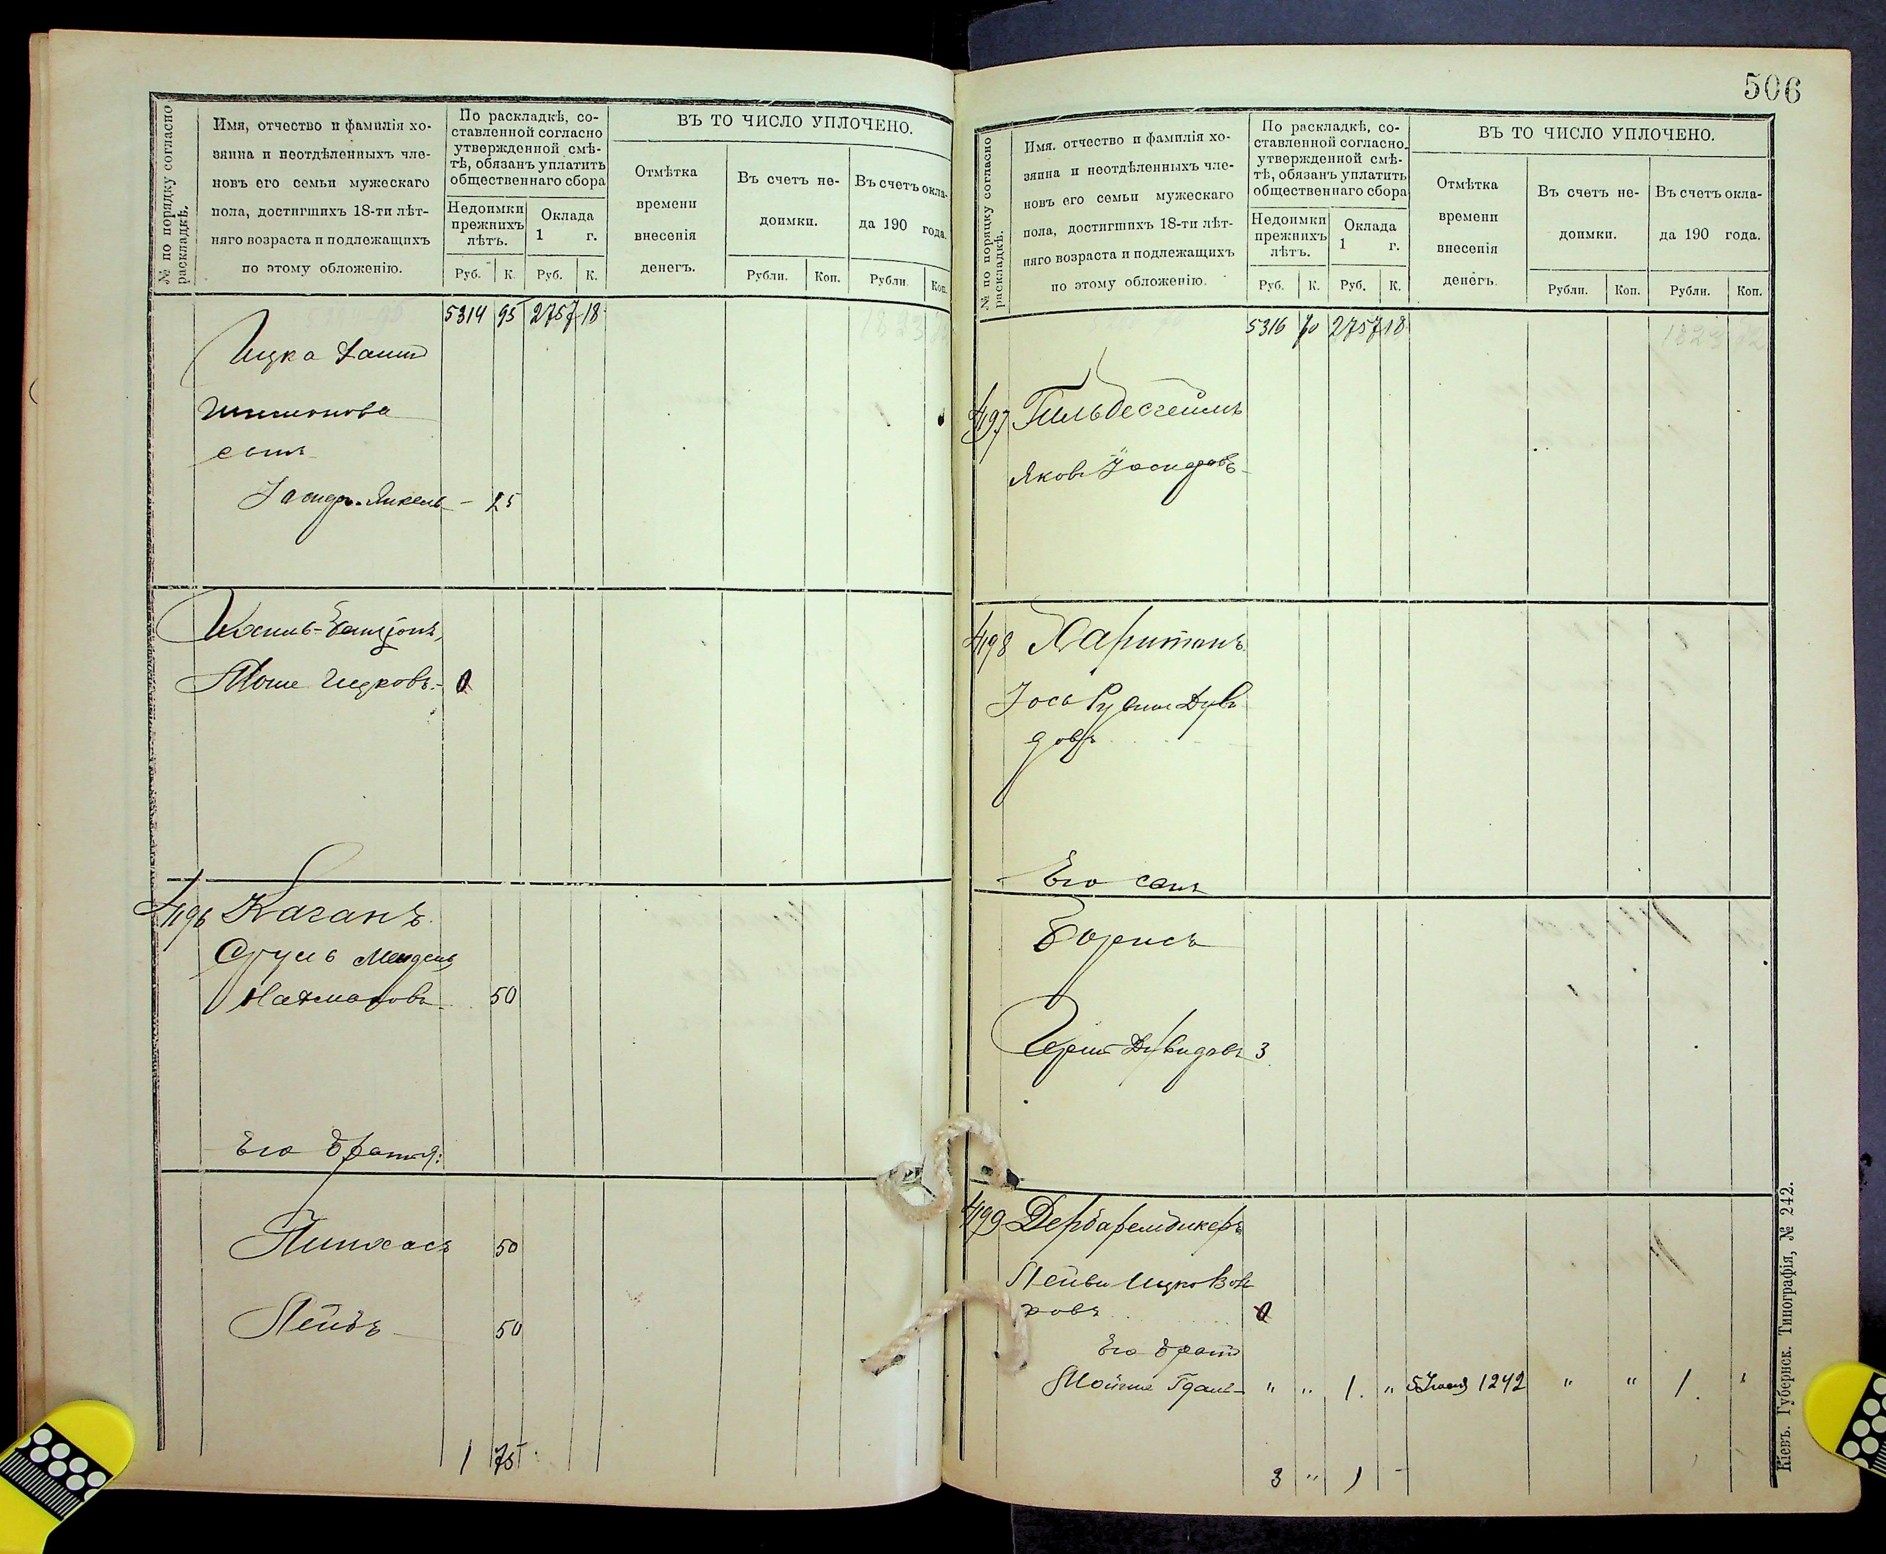 № по порядку согласно раскладкѣ.
Имя, отчество и фамилія хо-
зяина и неотдѣленныхъ чле-
новъ его семьи мужескаго
пола, достигшихъ 18-ти лѣт-
няго возраста и подлежащихъ
по этому обложенію.
По раскладкѣ, со-
ставленной согласно
утвержденной смѣ-
тѣ, обязанъ уплатить
общественнаго сбора
Недоимки
прежнихъ
лѣтъ.
Оклада
1 г.
Руб. К. Руб. К.
ВЪ ТО ЧИСЛО УПЛОЧЕНО.
Отмѣтка
времени
внесенія
денегъ.
Въ счетъ не-
доимки.
Рубли. Коп.
Въ счетъ окла-
да 190 года.
Рубли Коп.
5314 95 2757 18
Ицка
Шимонова
сынъ
Іосифъ-Янкель - 25
Мошe Ицковъ - 0
4196 Каганъ
Нахмановъ 50
Его братья:
Пинхасъ 50
Лейбъ 50
1 75
506
№ по порядку согласно раскладкѣ.
Имя, отчество и фамилія хо-
зяина и неотдѣленныхъ чле-
новъ его семьи мужескаго
пола, достигшихъ 18-ти лѣт-
няго возраста и подлежащихъ
по этому обложенію.
По раскладкѣ, со-
ставленной согласно
утвержденной смѣ-
тѣ, обязанъ уплатить
общественнаго сбора
Недоимки
прежнихъ
лѣтъ.
Оклада
1 г.
Руб. К. Руб. К.
ВЪ ТО ЧИСЛО УПЛОЧЕНО.
Отмѣтка
времени
внесенія
денегъ.
Въ счетъ не-
доимки.
Рубли. Коп.
Въ счетъ окла-
да 190 года.
Рубли. Коп.
5316 70 2757 18
4197 Гильдесгеймъ
Яковъ Іосифовъ
4198 Харитонъ
Іось Рувинъ Дуви
довъ
Его сынъ
Борисъ
Герш Дувидовъ 3
4199 Дербаремдикеръ
Лейви Ицковов
ховъ 0
Его братъ
Мойше Гдаль - " " 1 " 5 Іюня 1242 " " 1 "
3 " 1 -
Кіевъ. Губернск. Типографія, № 242.